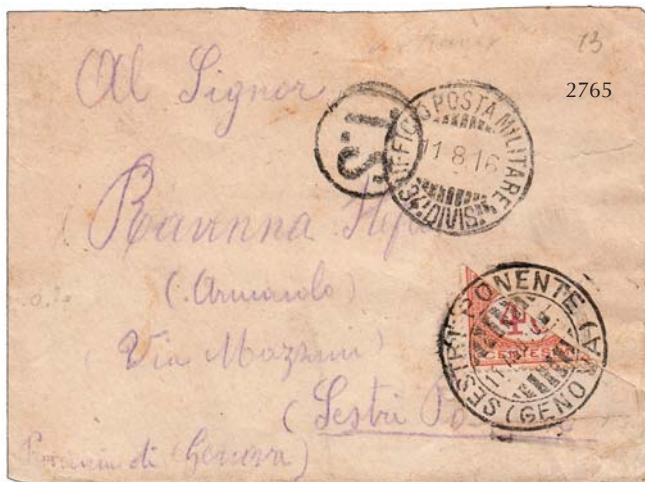 13
2765
Al Signor
T.S.
UFFICIO POSTA MILITARE
11 8 16
34ª DIVIS.
Ravenna
(Armaiolo)
(Via Mazzini)
(Sestri
Provincia di Genova)
SESTRI PONENTE (GENOVA)
11
CENTES